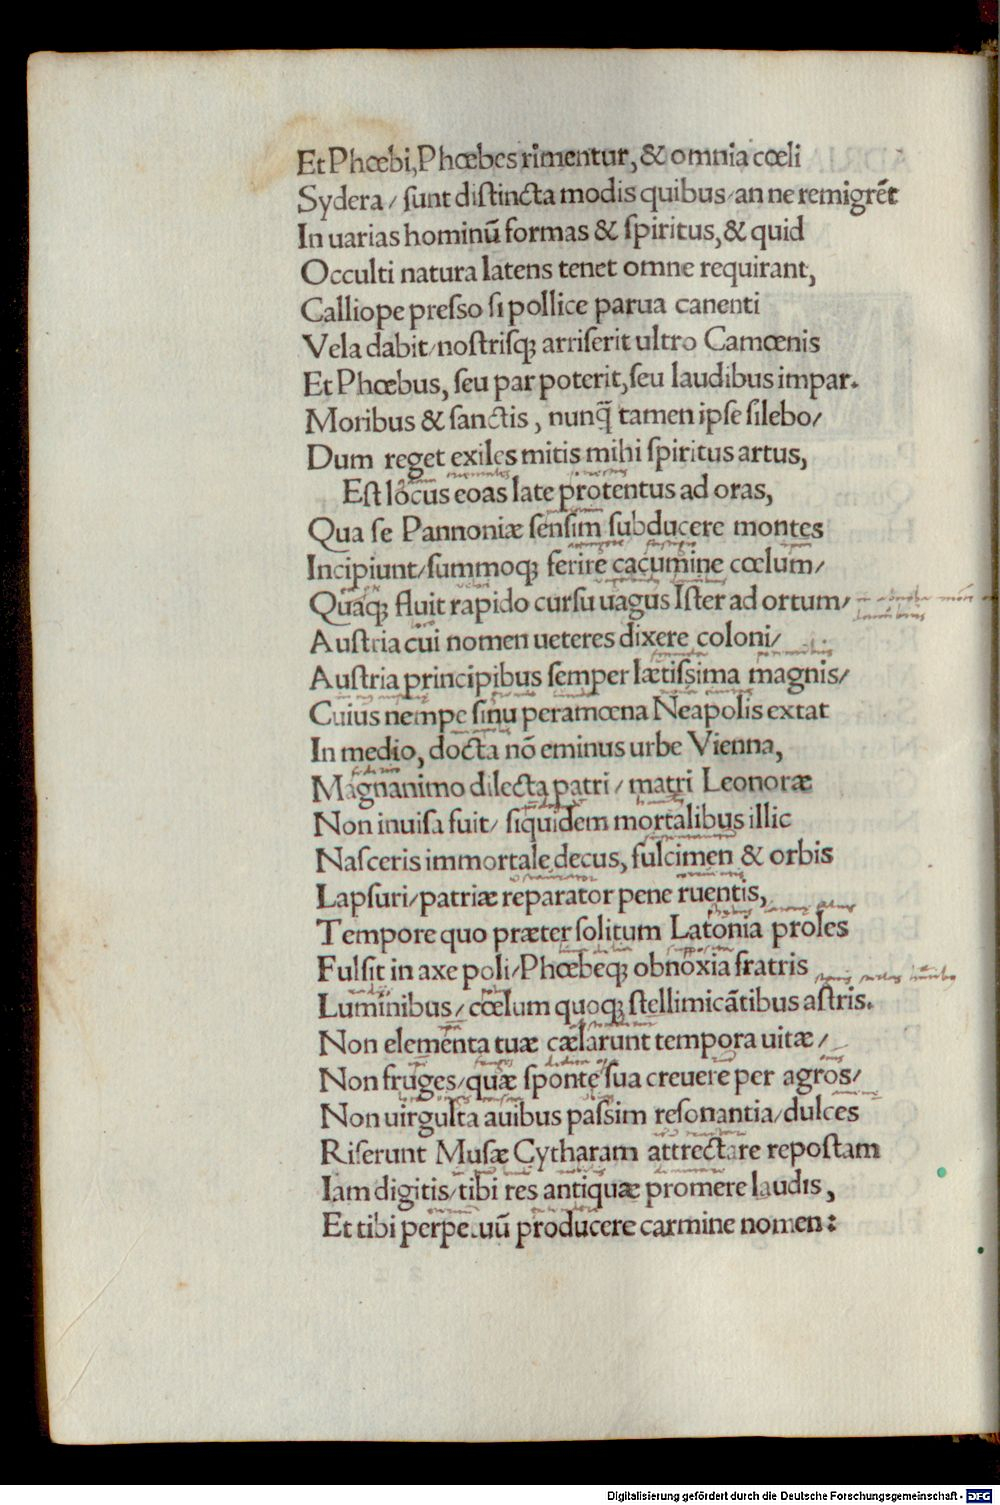 Et Phœbi, Phœbes rimentur, & omnia cœli
Sydera / ſunt diſtincta modis quibus / an ne remigrēt
In uarias hominū formas & ſpiritus, & quid
Occulti natura latens tenet omne requirant,
Calliope preſſo ſi pollice parua canenti
Vela dabit / noſtriſqꝫ arriſerit ultro Camœnis
Et Phœbus, ſeu par poterit, ſeu laudibus impar.
Moribus & ſanctis, nunq̄ tamen ipſe ſilebo /
Dum reget exiles mitis mihi ſpiritus artus,
Eſt locus eoas late protentus ad oras,
Qua ſe Pannoniæ ſenſim ſubducere montes
Incipiunt / ſummoqꝫ ferire cacumine cœlum /
Quaqꝫ fluit rapido curſu uagus Iſter ad ortum /
Auſtria cui nomen ueteres dixere coloni /
Auſtria principibus ſemper lætiſſima magnis /
Cuius nempe ſinu peramœna Neapolis extat
In medio, docta nō eminus urbe Vienna,
Magnanimo dilecta patri / matri Leonoræ
Non inuiſa fuit / ſiquidem mortalibus illic
Naſceris immortale decus, fulcimen & orbis
Lapſuri / patriæ reparator pene ruentis,
Tempore quo præter ſolitum Latonia proles
Fulſit in axe poli / Phœbeqꝫ obnoxia fratris
Luminibus / cœlum quoqꝫ ſtellimicātibus aſtris.
Non elementa tuæ cælarunt tempora uitæ /
Non fruges / quæ ſponte ſua creuere per agros /
Non uirgulta auibus paſſim reſonantia / dulces
Riſerunt Muſæ Cytharam attrectare repoſtam
Iam digitis / tibi res antiquæ promere laudis,
Et tibi perpetuū producere carmine nomen:
Digitalisierung gefördert durch die Deutsche Forschungsgemeinschaft - DFG